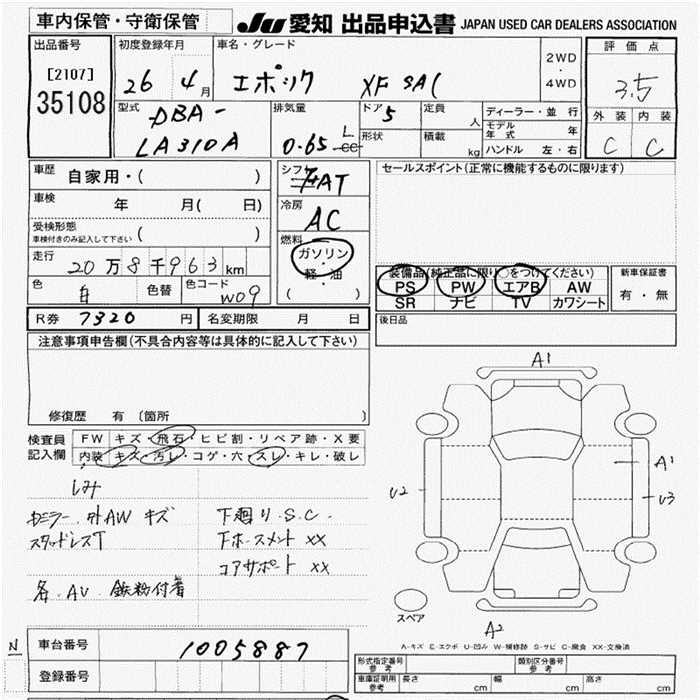 車内保管・守衛保管
JU 愛知 出品申込書 JAPAN USED CAR DEALERS ASSOCIATION
出品番号
[2107]
35108
初度登録年月
26 4月
車名・グレード
エポック XF SAⅠ
2WD
・
4WD
評価点
3.5
外装 内装
C C
型式
DBA-
LA310A
排気量
0.65 L
cc
ドア 5
形状
定員
人
積載
kg
ディーラー・並行
モデル年式 年
ハンドル 左・右
車歴 自家用・( )
車検 年 月( 日)
受検形態
車検付きのみ記入して下さい ( )
走行 20万8千963km
色 白 色替
色コード W09
シフト
AT
冷房
AC
燃料
ガソリン
・
軽・油
( )
セールスポイント(正常に機能するものに限ります)
装備品(純正品に限り○をつけてください)
PS PW エアB AW
SR ナビ TV カワシート
新車保証書
有・無
R券 7320 円
名変期限 月 日
後日品
注意事項申告欄(不具合内容等は具体的に記入して下さい)
修復歴 有 〔箇所 〕
検査員
記入欄
FW キズ・飛石・ヒビ割・リペア跡・X要
内装 キズ・汚レ・コゲ・穴・スレ・キレ・破レ
シミ
右ミラー.外AW キズ
スタッドレスT
各.AV 鉄粉付着
下廻り.S.C.
下ホースメント XX
コアサポート XX
A1
A1
U2
U3
A2
スペア
A-キズ E-エクボ U-凹み W-補修跡 S-サビ C-腐食 XX-交換済
N
車台番号 1005887
登録番号
形式指定番号
参考
類別区分番号
参考
車庫証明用
参考
長さ cm
幅 cm
高さ cm